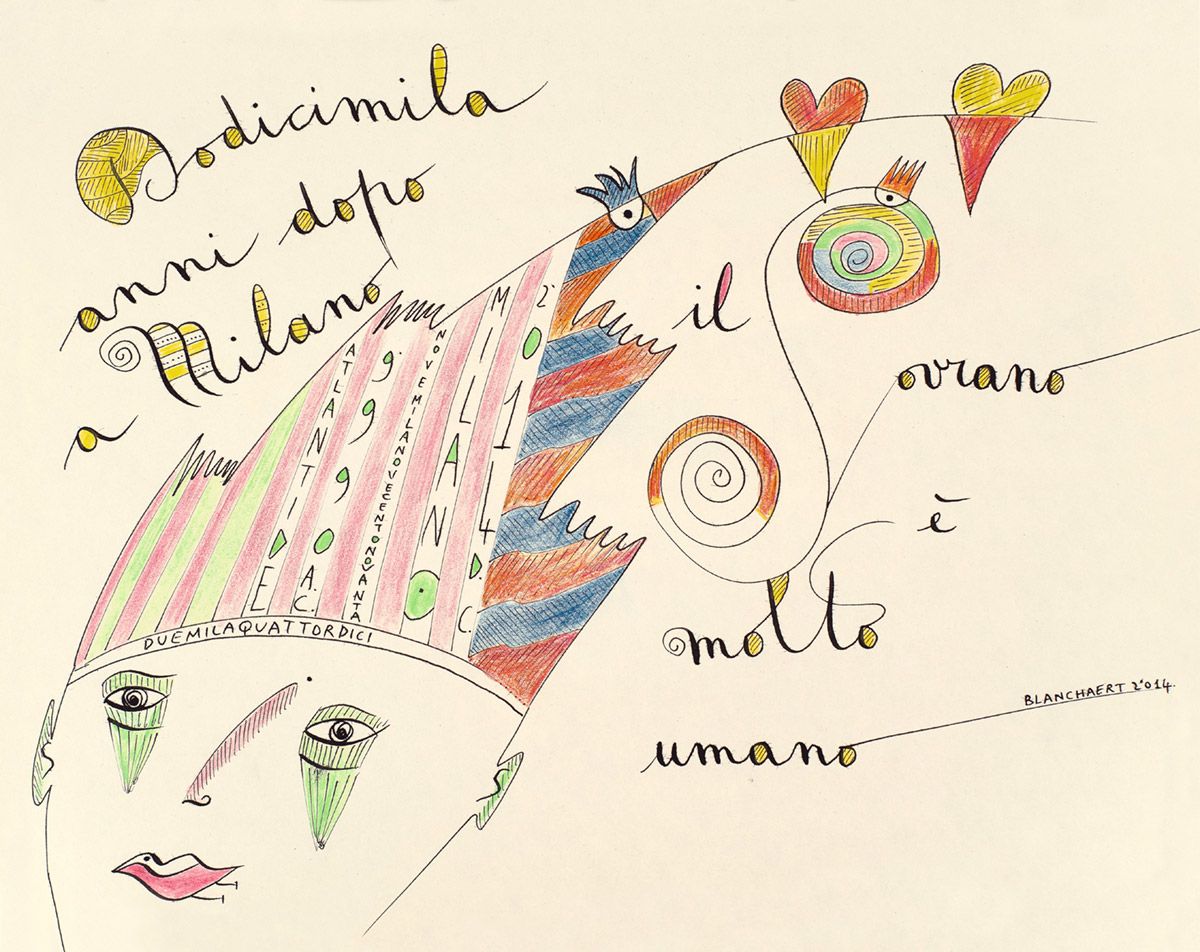 Dodicimila
anni dopo
a Milano
il
Sovrano
è
molto
umano
ATLANTIDE
9990 A.C.
NOVEMILANOVECENTONOVANTA
MILANO
2014 D.C.
DUEMILAQUATTORDICI
BLANCHAERT 2°014.